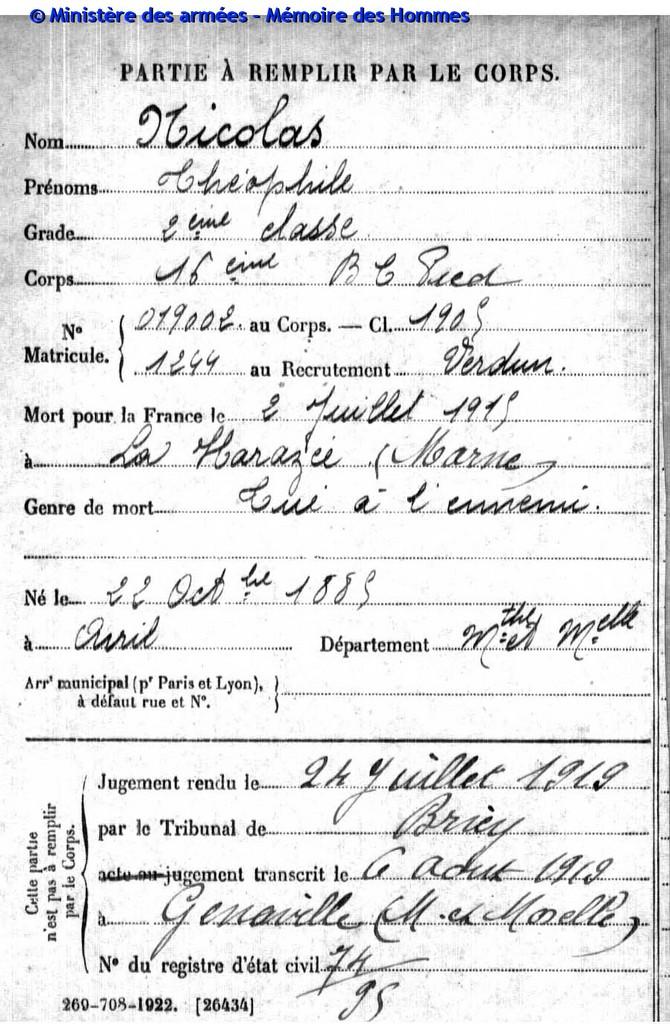 © Ministère des armées - Mémoire des Hommes
PARTIE À REMPLIR PAR LE CORPS.
Nom Nicolas
Prénoms Théophile
Grade 2ème classe
Corps 16ème B C Pied
N° Matricule. 019002. au Corps. — Cl. 1905
1244 au Recrutement Verdun.
Mort pour la France le 2 Juillet 1915
à La Harazée (Marne)
Genre de mort Tué à l'ennemi.
Né le 22 Octbre 1885
à Avril Département Mthe et Melle
Arrt municipal (pr Paris et Lyon),
à défaut rue et N°.
Cette partie
n'est pas à remplir
par le Corps.
Jugement rendu le 24 Juillet 1919
par le Tribunal de Briey
acte ou jugement transcrit le 6 aout 1919
à Genaville (M. et Moselle)
N° du registre d'état civil 74/95
260-708-1922. [26434]